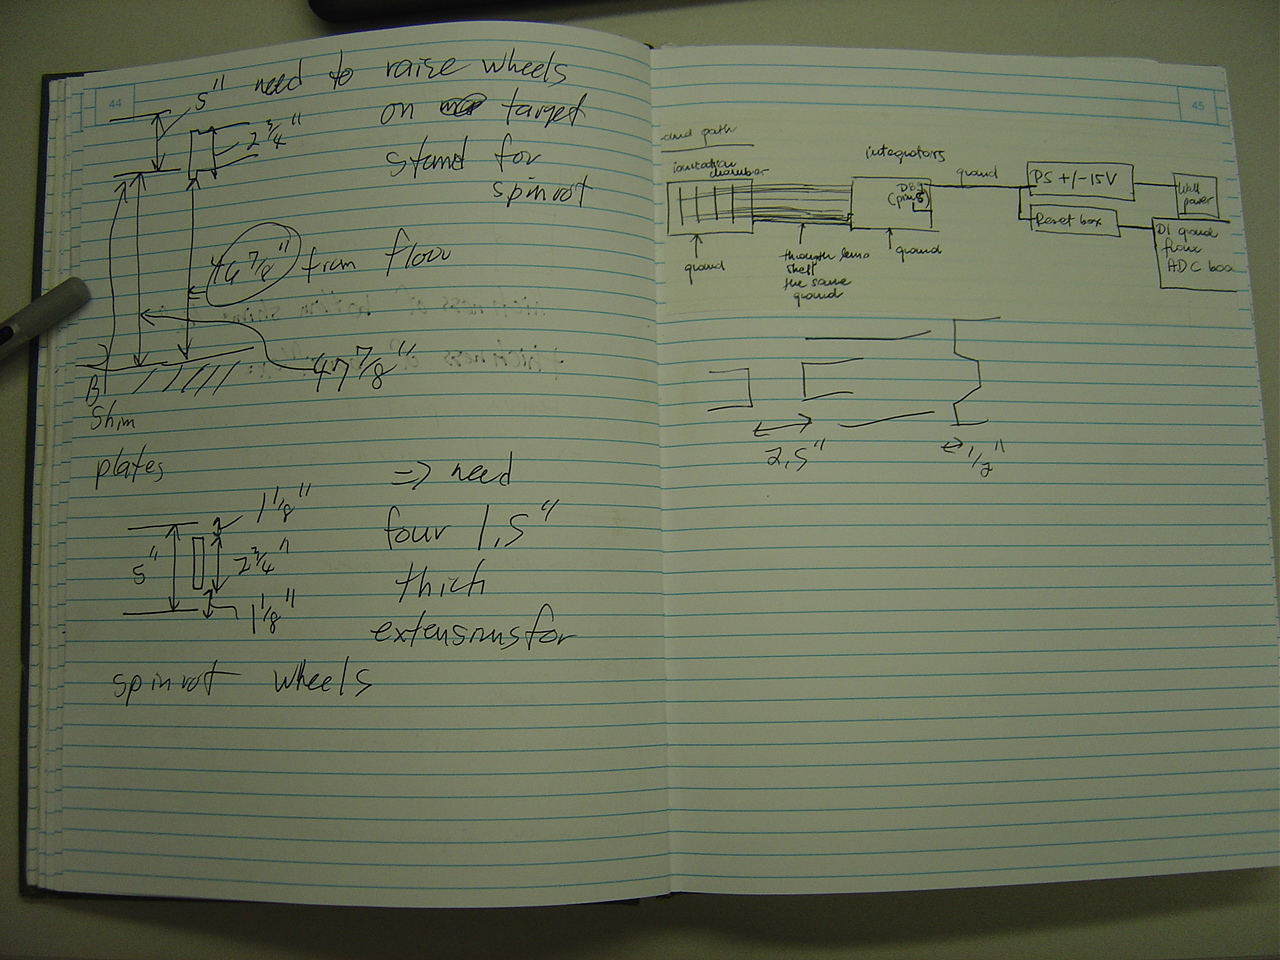 44
5" need to raise wheels
on target
2 3/4"
stand for
spinrot
46 7/8" from floor
47 7/8"
Shim
plates
=> need
1 1/8"
four 1,5"
5"
2 3/4"
thich
1 1/8"
extensions for
spinrot wheels
45
path
ionization
chamber
integrators
ground
PS +/-15V
Wall
power
Reset box
DI ground
from
ADC
ground
ground
the same
ground
2,5"
1/2"